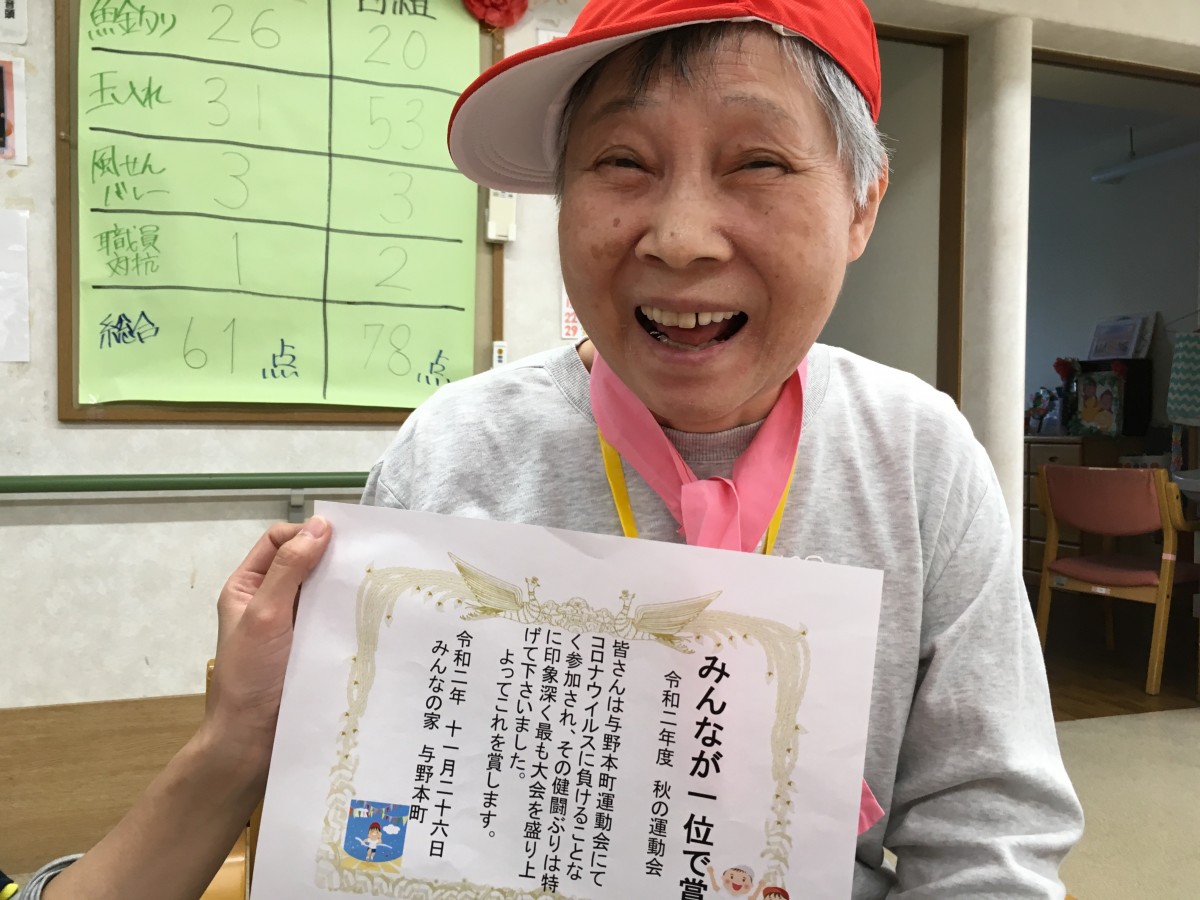 白組
魚釣り 26 20
玉入れ 31 53
風せん
バレー 3 3
職員
対抗 1 2
総合 61点 78点
22
29
みんなが一位で賞
令和二年度 秋の運動会
皆さんは与野本町運動会にて
コロナウイルスに負けることな
く参加され、その健闘ぶりは特
に印象深く最も大会を盛り上
げて下さいました。
よってこれを賞します。
令和二年 十一月二十六日
みんなの家 与野本町